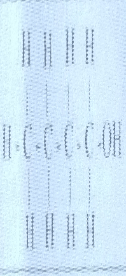 H H H H
H-C-C-C-C-OH
H H H H